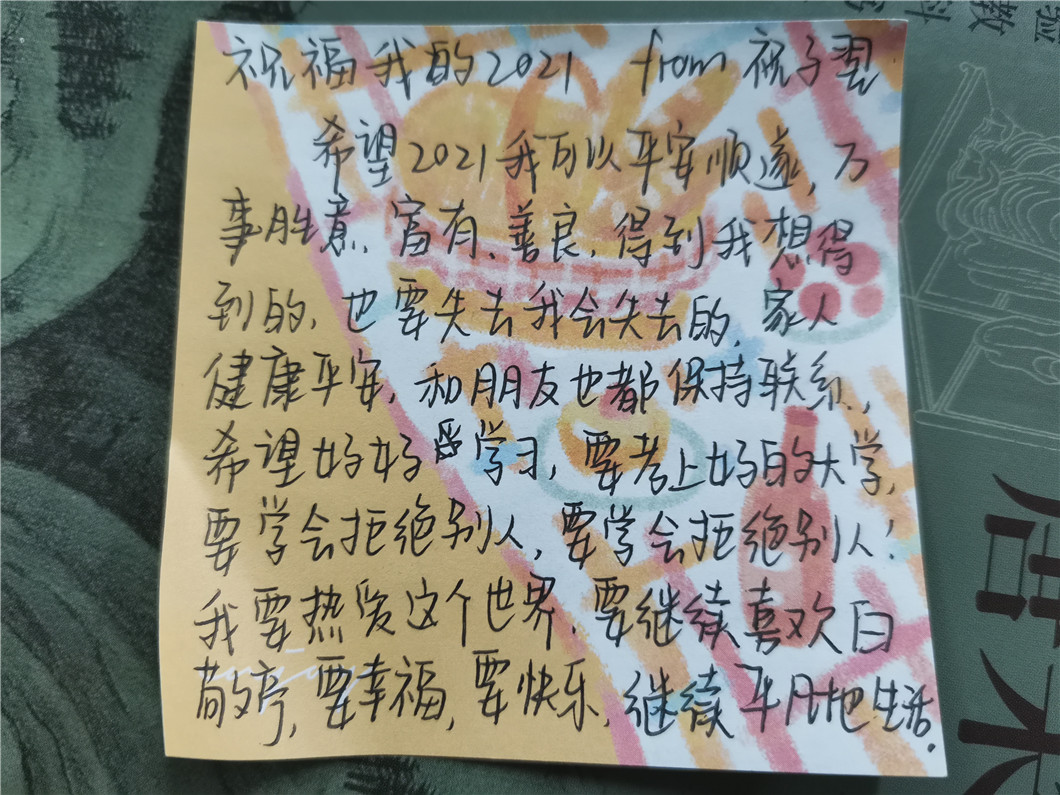 祝福我的2021 from 祝子翌
希望2021我可以平安顺遂,万
事胜意,富有、善良,得到我想得
到的,也要失去我会失去的,家人
健康平安,和朋友也都保持联系,
希望好好学习,要考上好的大学,
要学会拒绝别人,要学会拒绝别人!
我要热爱这个世界,要继续喜欢白
敬亭,要幸福,要快乐,继续平凡地生活.
验
教
科